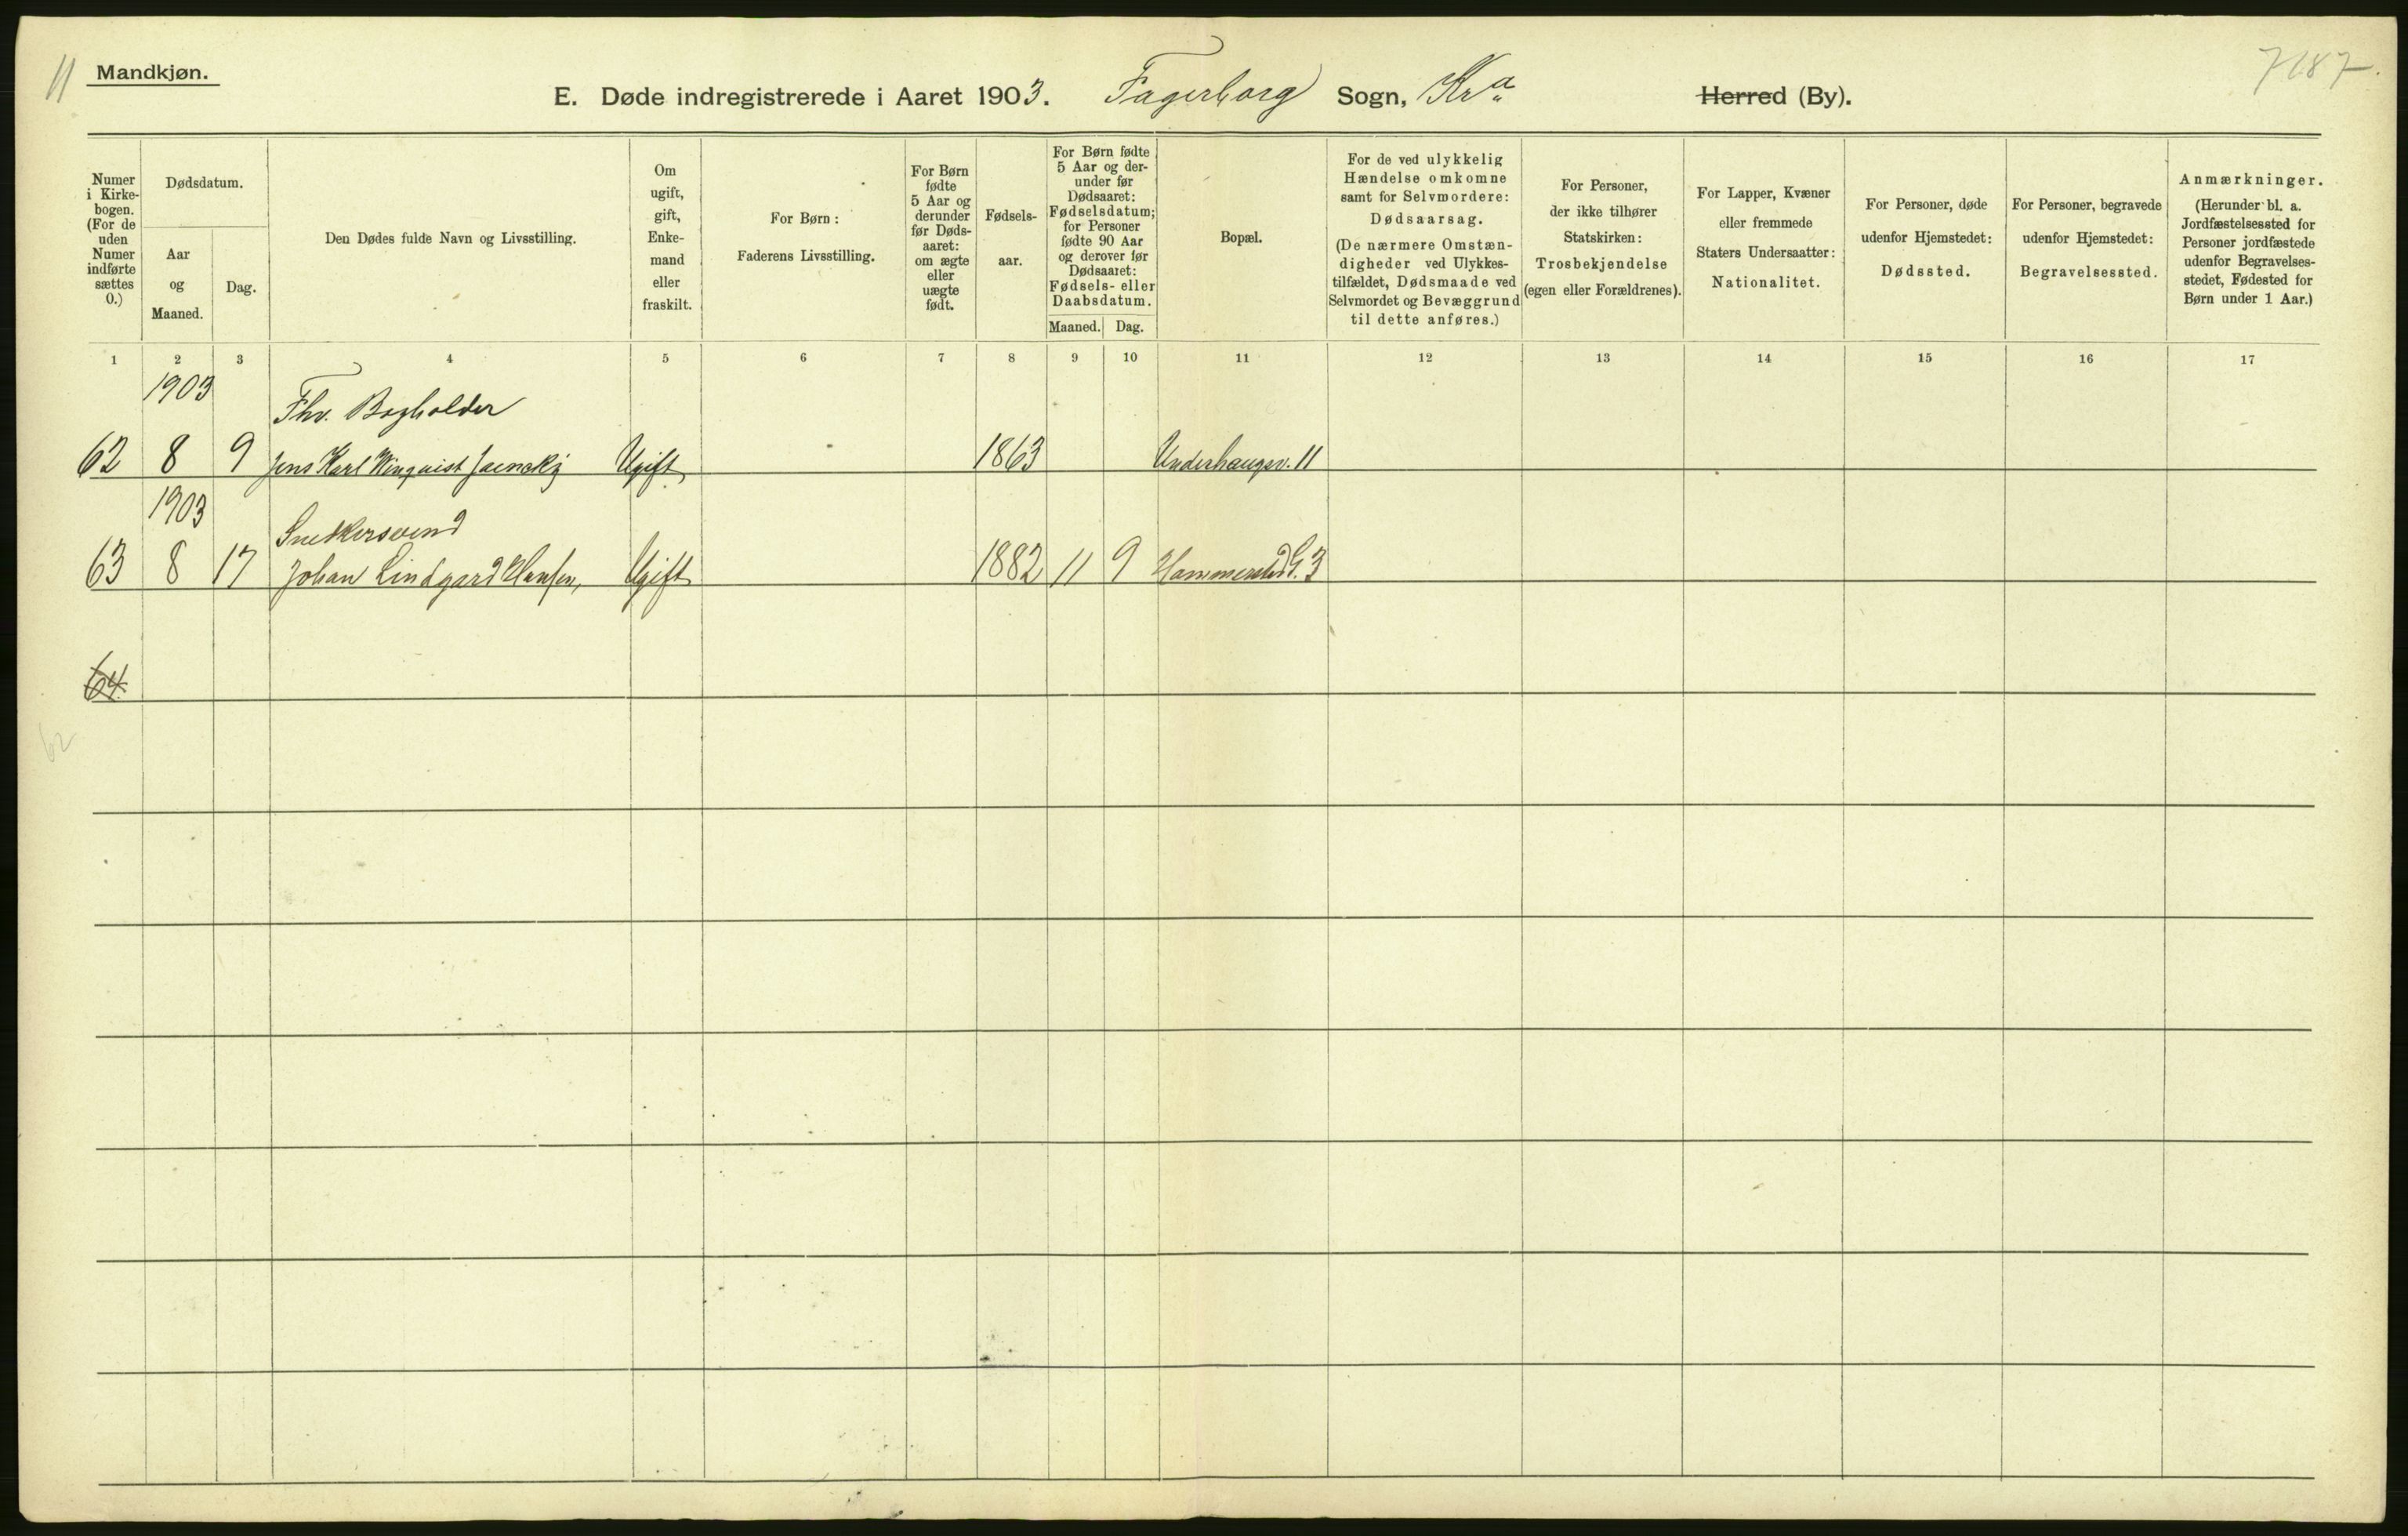 11 Mandkjøn.
7187.
E. Døde indregistrerede i Aaret 1903. Fagerborg Sogn, Kra Herred (By).
Numer
i Kirke-
bogen.
(For de
uden
Numer
indførte
sættes
0.)
Dødsdatum.
Aar
og
Maaned.
Dag.
Den Dødes fulde Navn og Livsstilling.
Om
ugift,
gift,
Enke-
mand
eller
fraskilt.
For Børn:
Faderens Livsstilling.
For Børn
fødte
5 Aar og
derunder
før Døds-
aaret:
om ægte
eller
uægte
født.
Fødsels-
aar.
For Børn fødte
5 Aar og der-
under før
Dødsaaret:
Fødselsdatum;
for Personer
fødte 90 Aar
og derover før
Dødsaaret:
Fødsels- eller
Daabsdatum.
Maaned. Dag.
Bopæl.
For de ved ulykkelig
Hændelse omkomne
samt for Selvmordere:
Dødsaarsag.
(De nærmere Omstæn-
digheder ved Ulykkes-
tilfældet, Dødsmaade ved
Selvmordet og Bevæggrund
til dette anføres.)
For Personer,
der ikke tilhører
Statskirken:
Trosbekjendelse
(egen eller Forældrenes).
For Lapper, Kvæner
eller fremmede
Staters Undersaatter:
Nationalitet.
For Personer, døde
udenfor Hjemstedet:
Dødssted.
For Personer, begravede
udenfor Hjemstedet:
Begravelsessted.
Anmærkninger.
(Herunder bl. a.
Jordfæstelsessted for
Personer jordfæstede
udenfor Begravelses-
stedet, Fødested for
Børn under 1 Aar.)
1 2 3 4 5 6 7 8 9 10 11 12 13 14 15 16 17
1903
Fhv. Bogholder
62 8 9 Jens Karl Winquist Ugift 1863 Underhaugsv. 11
1903
Snedkersvend
63 8 17 Johan Lindgard Hansen, Ugift 1882 11 9 Hammerstad G. 3
64
62